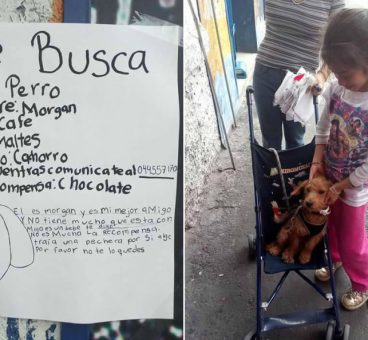 Busca
Perro
re: Morgan
CAFE
Maltes
o: CaChorro
uentras comunicate al 044557170
ompensa: Chocolate
El es morgan y es mi mejor aMigo
NO tiene mucho que esta con
Migo es un bebe te digo
NO es Mucha La Recompensa.
traia una pechera por si algo
Por favor no te lo quedes